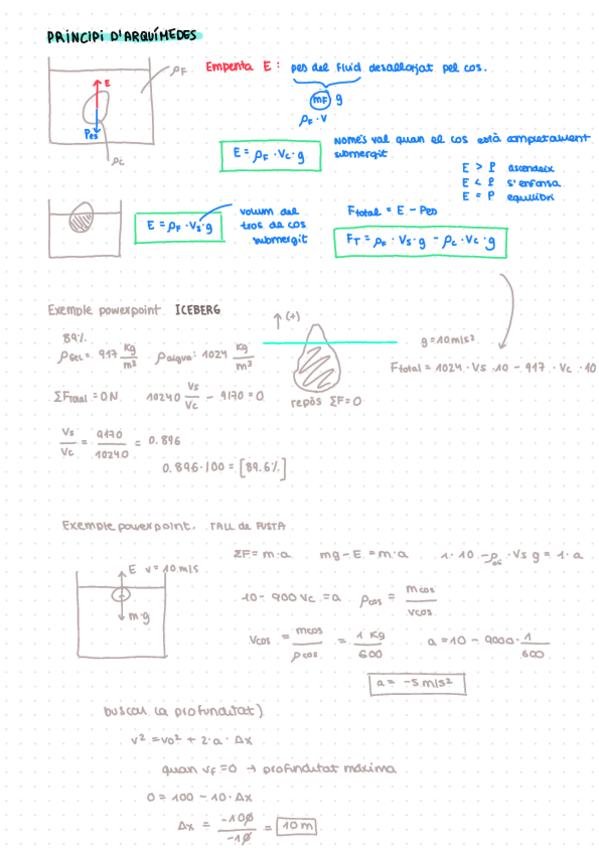 PRINCIPI D'ARQUÍMEDES
Empenta E: pes del fluid desallotjat pel cos.
ρF
E
Pes
ρc
mF g
ρF · V
E = ρF · Vc · g
Només val quan el cos està completament submergit
E > P ascendeix
E < P s'enfonsa
E = P equilibri
E = ρF · Vs · g
volum del
tros de cos
submergit
Ftotal = E - Pes
FT = ρF · Vs · g - ρc · Vc · g
Exemple powerpoint ICEBERG
↑(+)
89%
ρgel = 917 kg/m³ ρaigua: 1024 kg/m³
g = 10 m/s²
Ftotal = 1024 · Vs · 10 - 917 · Vc · 10
repòs ΣF = 0
ΣFtotal = 0N 10240 Vs/Vc - 9170 = 0
Vs/Vc = 9170/10240 = 0.896
0.896 · 100 = [89.6%]
Exemple powerpoint. TALL de FUSTA
ΣF = m·a mg - E = m·a 1 · 10 - ρ · Vs g = 1 · a
E v = 10 m/s
m·g
10 - 900 Vc = a ρcos = mcos/Vcos
Vcos = mcos/ρcos = 1 Kg/600 a = 10 - 9000 · 1/600
a = -5 m/s²
buscar la profunditat)
v² = v0² + 2·a · Δx
quan vF = 0 → profunditat màxima
0 = 100 - 10 · Δx
Δx = -100/-10 = 10 m